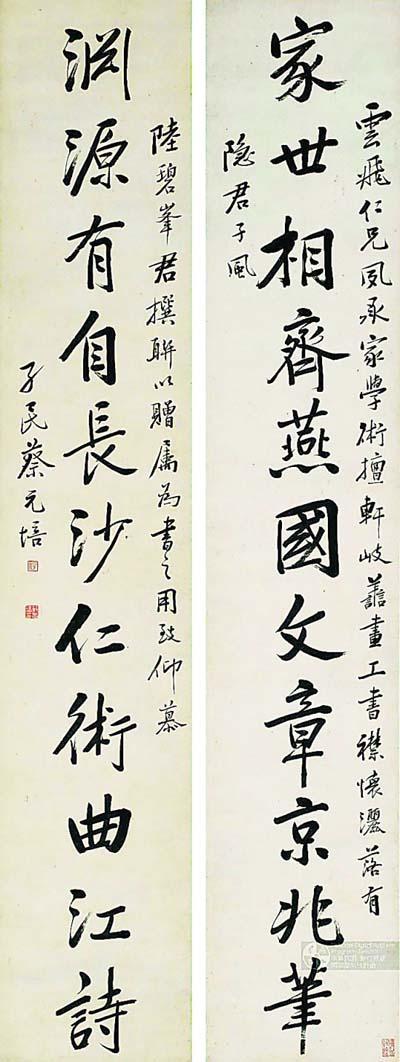 雲飛仁兄夙承家學術擅軒岐譱畫工書襟懷灑落有
家世相齊燕國文章京兆筆
隐君子風
陸碧峯君撰聯以贈屬為書之用致仰慕
淵源有自長沙仁術曲江詩
孑民蔡元培